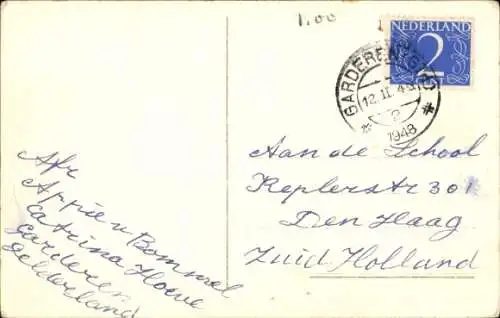 1.00
NEDERLAND
2
GARDEREN
12.II.4
1948
Aan de School
Keplerstr 301
Den Haag
Zuid Holland
Afz
Appie v Bommel
Catrina Hoeve
Garderen
Gelderland